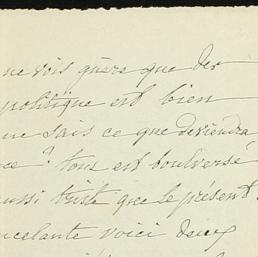 ne vois guère que des
politique est bien
ne sais ce que deviendra
ce ? tout est boulversé
aussi triste que le présent
ncelante voici deux